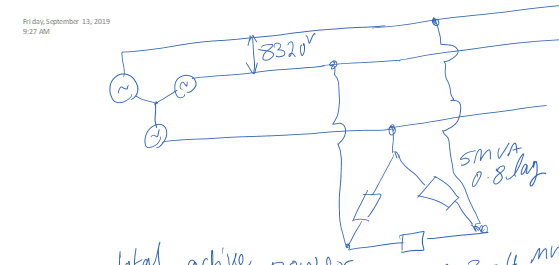 Friday, September 13, 2019
9:27 AM
8320V
5MVA
0.8 lag
total active power